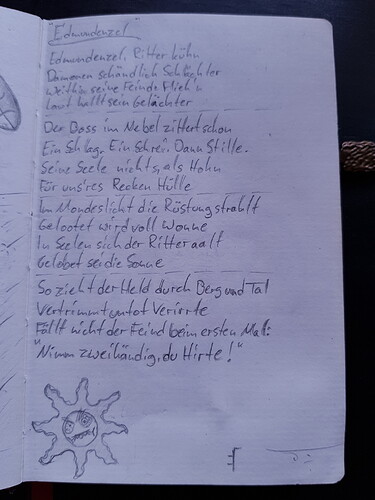 "Edmundenzel"
Edmundenzel, Ritter kühn
Dämonen schändlich Schlächter
weithin seine Feinde flieh'n
Laut hallt sein Gelächter
Der Boss im Nebel zittert schon
Ein Schlag. Ein Schrei. Dann Stille.
Seine Seele nichts, als Hohn
Für uns'res Recken Hülle
Im Mondeslicht die Rüstung strahlt
Gelootet wird voll Wonne
In Seelen sich der Ritter aalt
Gelobet sei die Sonne
So zieht der Held durch Berg und Tal
Vertrimmt untot Verirrte
Fällt nicht der Feind beim ersten Mal:
"Nimm zweihändig, du Hirte!"